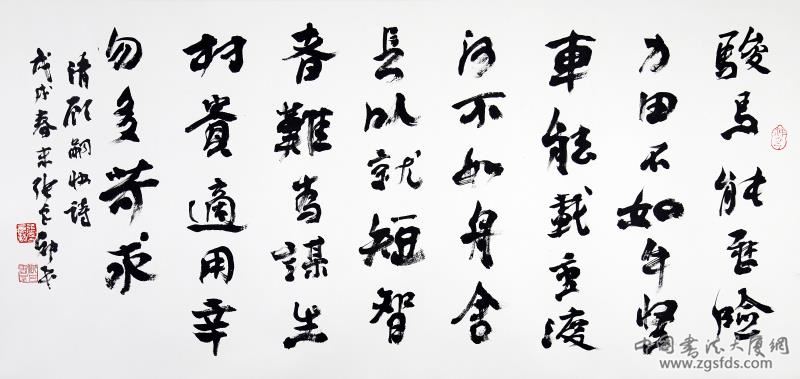 駿馬能歷險
力田不如牛堅
車能載重渡
河不如舟舍
長以就短智
者難為謀生
材貴適用幸
勿多苛求
清顾嗣協詩
戊戌春末张良勋书
中国书法大厦網
www.zgsfds.com